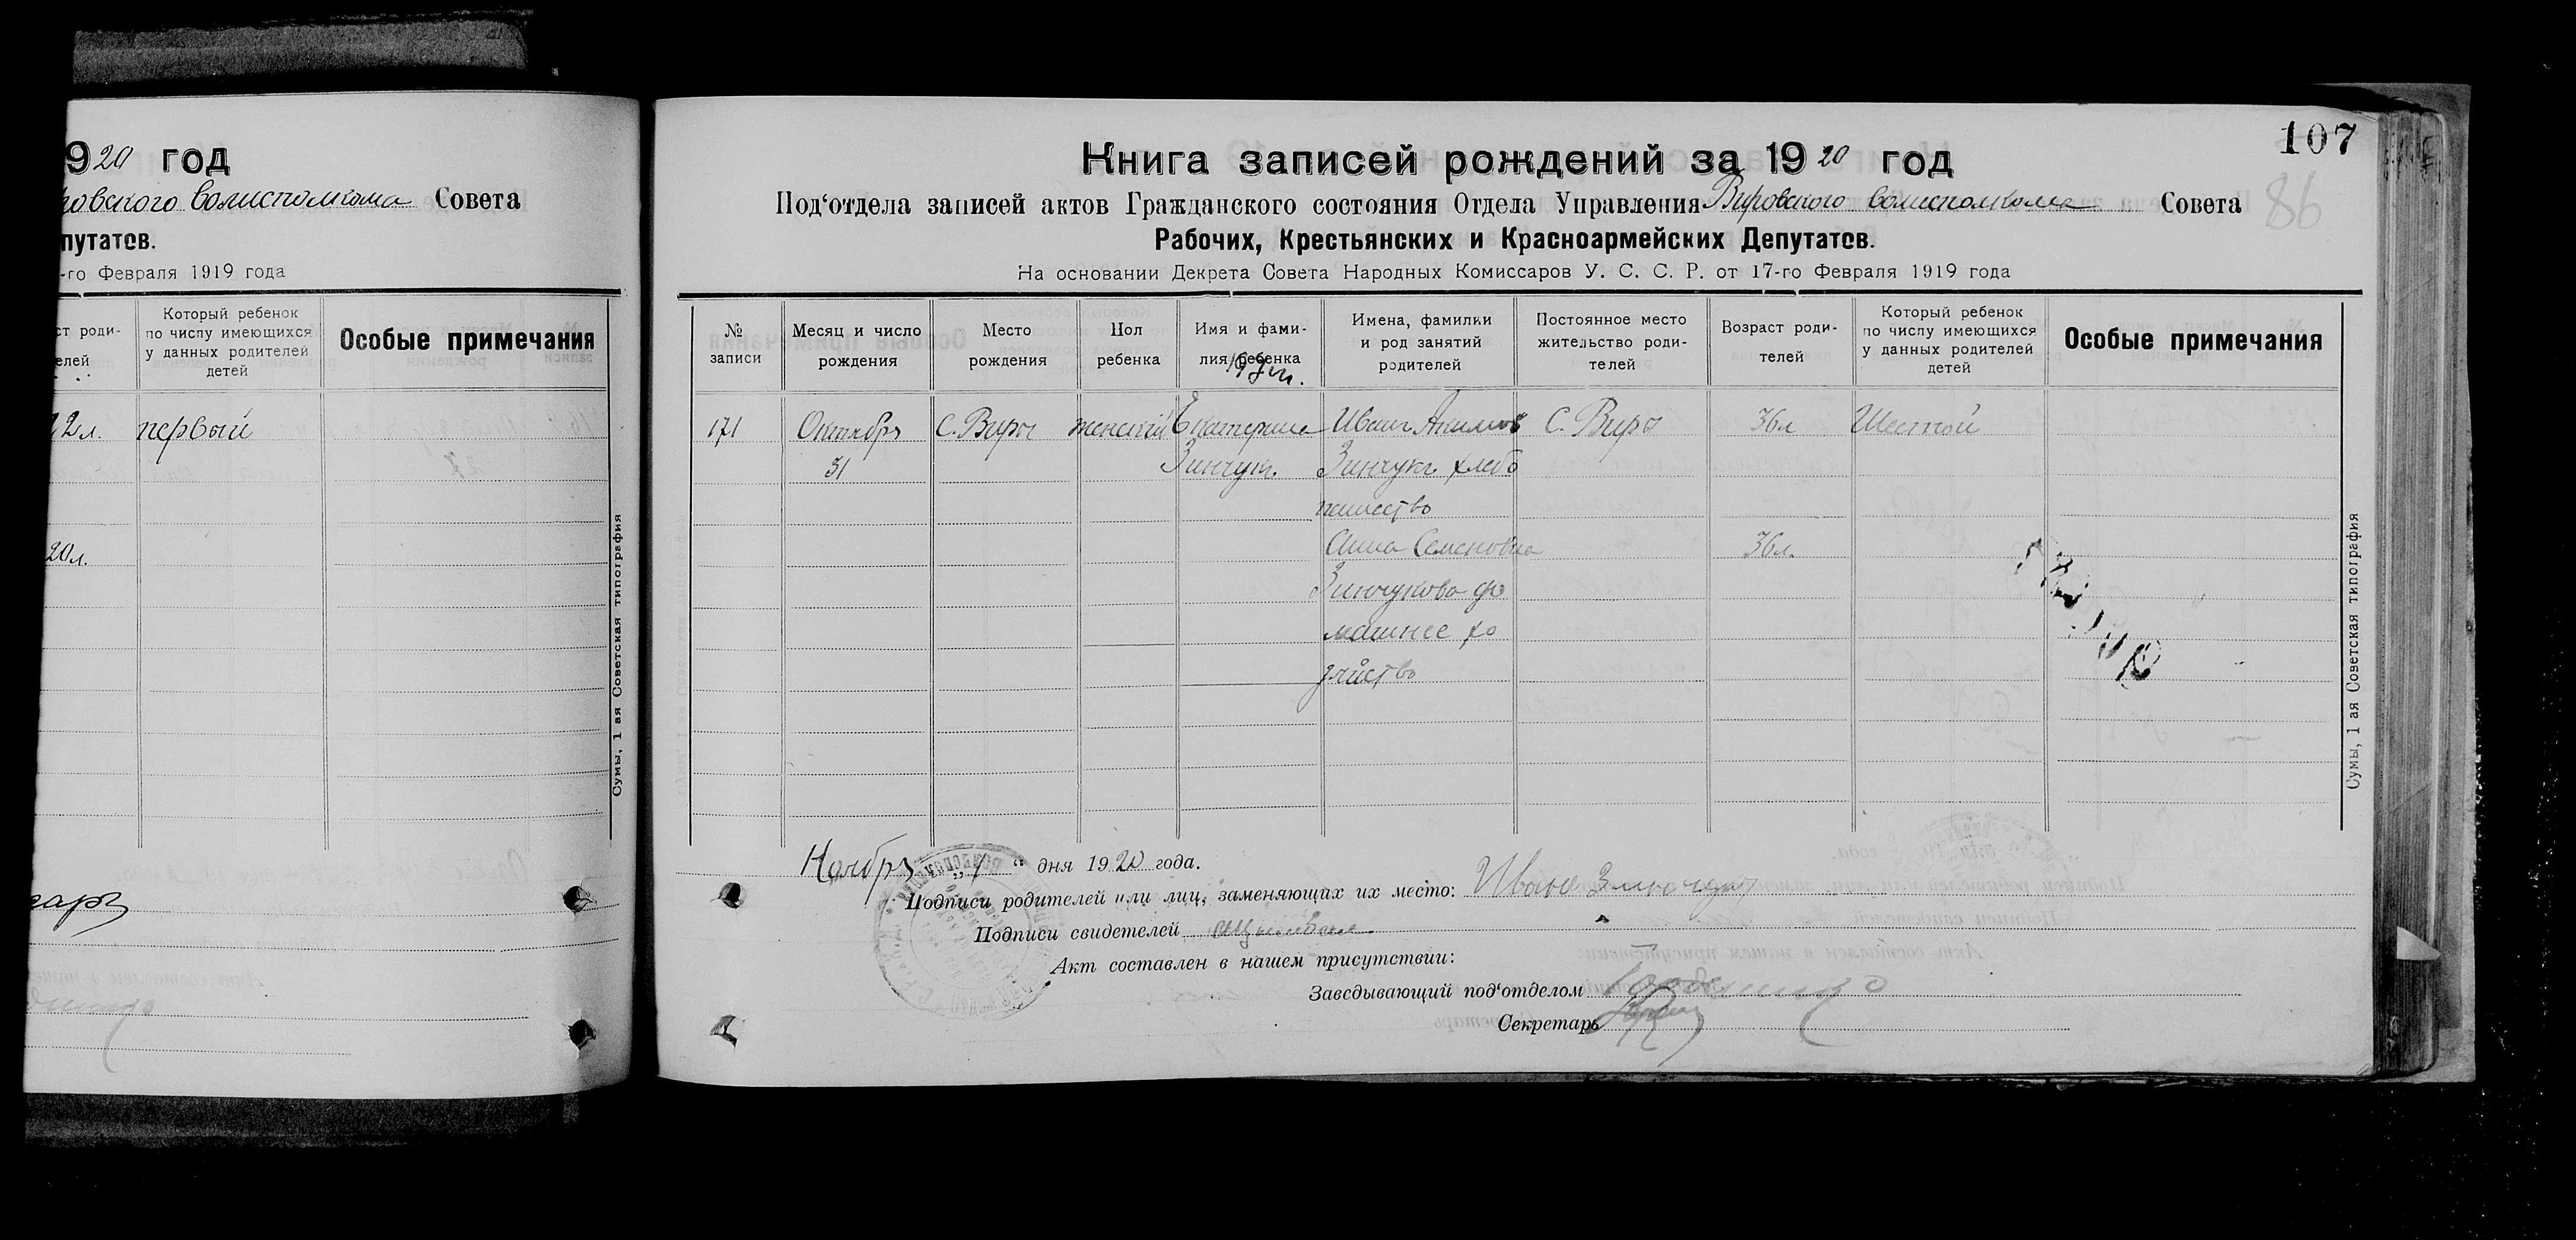 920 год
ровского волисполкома Совета
путатов.
-го Февраля 1919 года
ст роди-
елей
Который ребенок
по числу имеющихся
у данных родителей
детей
Особые примечания
22л. первый
20л.
Сумы, 1 ая Советская типография
107
86
Книга записей рождений за 1920 год
Под‘отдела записей актов Гражданского состояния Отдела Управления Вировского волисполкома Совета
Рабочих, Крестьянских и Красноармейских Депутатов.
На основании Декрета Совета Народных Комиссаров У. С. С. Р. от 17-го Февраля 1919 года
№
записи
Месяц и число
рождения
Место
рождения
Пол
ребенка
Имя и фами-
лия ребенка
Имена, фамилии
и род занятий
родителей
Постоянное место
жительство роди-
телей
Возраст роди-
телей
Который ребенок
по числу имеющихся
у данных родителей
детей
Особые примечания
171 Октября С. Виры женский Екатерина Иван Акимов С. Виры 36л Шестой
31 Зинчук. Зинчукъ хлебо
пашество
Анна Семеновна 36л.
Зинчукова до
машнее хо
зяйство
Сумы, 1 ая Советская типография
Ноября „1“ дня 1920 года.
Подписи родителей или лиц, заменяющих их место: Иван Зинчук
Подписи свидетелей
Акт составлен в нашем присутствии:
Заведывающий под‘отделом
Секретарь